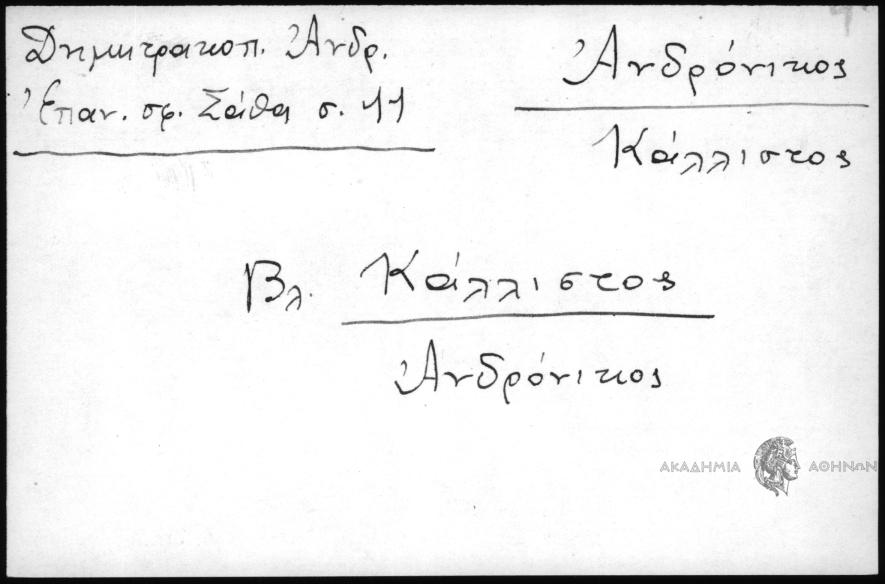 Δημητρακοπ. Ἀνδρ.
Ἐπαν. σφ. Σάθα σ. 11
Ἀνδρόνικος
Κάλλιστος
Βλ. Κάλλιστος
Ἀνδρόνικος
ΑΚΑΔΗΜΙΑ ΑΘΗΝΩΝ